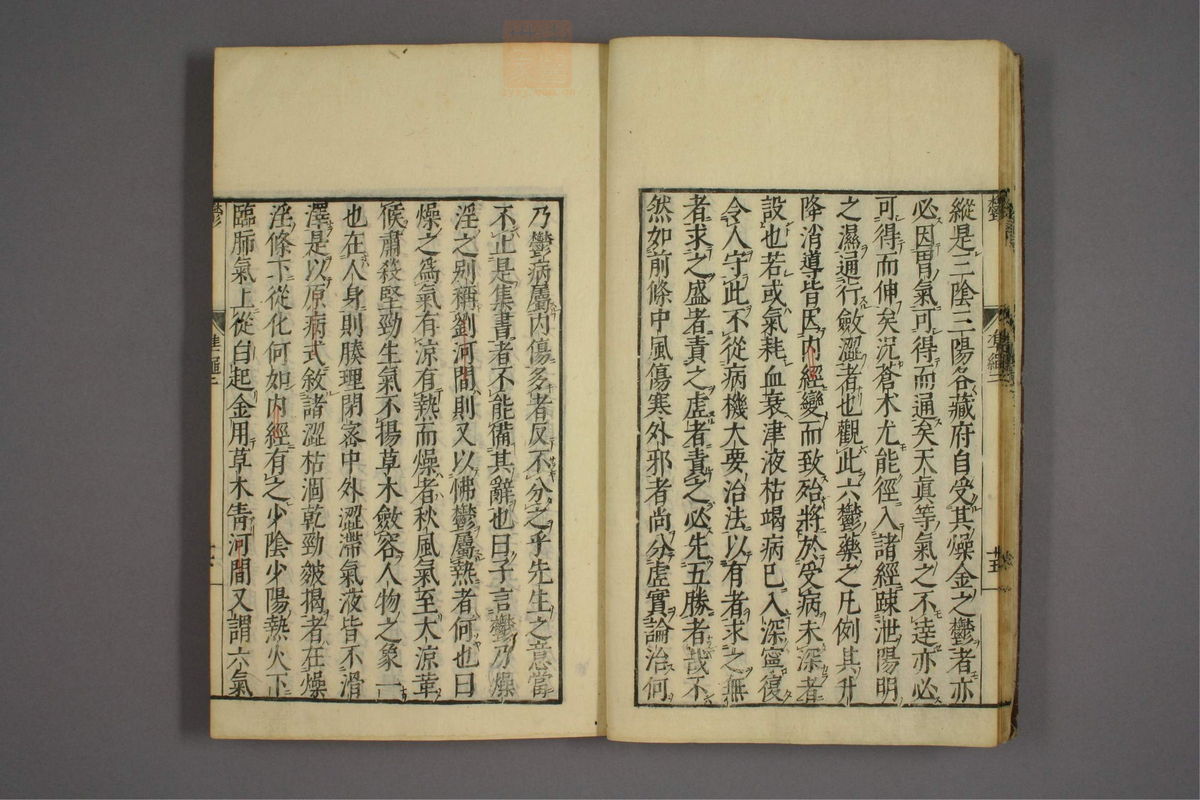 縱是三陰三陽各藏府自受其燥金之鬱者亦
必因胃氣可得而通矣天眞等氣之不逹亦必
可得而伸矣況蒼术尤能徑入諸經踈泄陽明
之濕通行斂澀者也觀此六鬱藥之凡例其升
降消導皆因内經變而致殆將於受病未深者
設也若或氣耗血衰津液枯竭病已入深寧復
令人守此不從病機大要治法以有者求之無
者求之盛者責之虛者責之必先五勝者哉不
然如前條中風傷寒外邪者尚分虛實論治何
乃鬱病屬内傷多者反不分之乎先生之意當
不止是集書者不能備其辭也曰子言鬱乃燥
淫之别稱劉河間則又以怫鬱屬熱者何也曰
燥之爲氣有涼有熱而燥者秋風氣至大涼革
候肅殺堅勁生氣不揚草木斂容人物之象一
也在人身則腠理閉宻中外澀滯氣液皆不滑
澤是以原病式敘諸澀枯涸乾勁皴揭者在燥
淫條下從化何如内經有之少陰少陽熱火下
臨肺氣上從白起金用草木眚河間又謂六氣